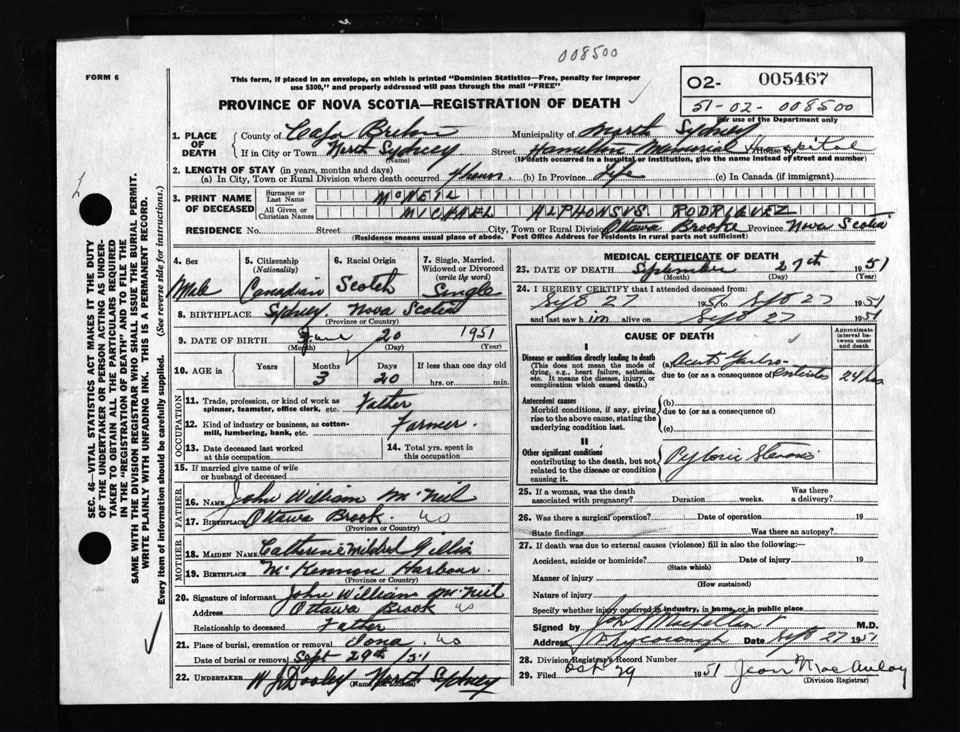 008500
FORM 6
This form, if placed in an envelope, on which is printed "Dominion Statistics—Free, penalty for improper
use $300," and properly addressed will pass through the mail "FREE"
O2- 005467
51-02-008500
For use of the Department only
PROVINCE OF NOVA SCOTIA—REGISTRATION OF DEATH
1. PLACE OF DEATH County of Cape Breton Municipality of North Sydney
If in City or Town North Sydney (Name) Street Hamilton Memorial Hospital House No.
(If death occurred in a hospital or institution, give the name instead of street and number)
2. LENGTH OF STAY (in years, months and days)
(a) In City, Town or Rural Division where death occurred 4 hours (b) In Province Life (c) In Canada (if immigrant)
3. PRINT NAME OF DECEASED Surname or Last Name McNEIL
All Given or Christian Names MICHAEL ALPHONSUS RODRIQUEZ
RESIDENCE No. Street City, Town or Rural Division Ottawa Brooke Province Nova Scotia
(Residence means usual place of abode. Post Office Address for residents in rural parts not sufficient)
4. Sex Male
5. Citizenship (Nationality) Canadian
6. Racial Origin Scotch
7. Single, Married, Widowed or Divorced (write the word) Single
8. BIRTHPLACE Sydney. Nova Scotia
(Province or Country)
9. DATE OF BIRTH June 20 1951
(Month) (Day) (Year)
10. AGE in Years Months Days If less than one day old
3 20 hrs. or min.
OCCUPATION
11. Trade, profession, or kind of work as spinner, teamster, office clerk, etc. Father
12. Kind of industry or business, as cotton-mill, lumbering, bank, etc. Farmer.
13. Date deceased last worked at this occupation
14. Total yrs. spent in this occupation
15. If married give name of wife or husband of deceased
FATHER
16. NAME John William McNeil
17. BIRTHPLACE Ottawa Brook. NS
(Province or Country)
MOTHER
18. MAIDEN NAME Catherine Mildred Gillis
19. BIRTHPLACE McKinnon Harbour.
(Province or Country)
20. Signature of informant John William McNeil
Address Ottawa Brook NS
Relationship to deceased Father
21. Place of burial, cremation or removal Iona. NS
Date of burial or removal Sept 29th/51
22. UNDERTAKER W J Dooley North Sydney
(Name and Address)
MEDICAL CERTIFICATE OF DEATH
23. DATE OF DEATH September 27th 1951
(Month) (Day) (Year)
24. I HEREBY CERTIFY that I attended deceased from:
Sept 27 1951 to Sept 27 1951
and last saw him alive on Sept 27 1951
CAUSE OF DEATH
Approximate interval between onset and death
I
Disease or condition directly leading to death
(This does not mean the mode of dying, e.g., heart failure, asthenia, etc. It means the disease, injury, or complication which caused death.)
(a) Acute Gastro-
due to (or as a consequence of) Enteritis 24 hrs
Antecedent causes
Morbid conditions, if any, giving rise to the above cause, stating the underlying condition last.
(b)
due to (or as a consequence of)
(c)
II
Other significant conditions
contributing to the death, but not related to the disease or condition causing it.
Pyloric Stenosis
25. If a woman, was the death associated with pregnancy? Duration weeks. Was there a delivery?
26. Was there a surgical operation? Date of operation 19
State findings Was there an autopsy?
27. If death was due to external causes (violence) fill in also the following:
Accident, suicide or homicide? Date of injury 19
(State which)
Manner of injury
(How sustained)
Nature of injury
Specify whether injury occurred in industry, in home, or in public place
Signed by M.D.
Address Date Sept 27 1951
28. Division Registrar's Record Number
29. Filed Oct 29 1951 Jean MacAulay
(Division Registrar)
SEC. 46—VITAL STATISTICS ACT MAKES IT THE DUTY
OF THE UNDERTAKER OR PERSON ACTING AS UNDER-
TAKER TO OBTAIN ALL THE PARTICULARS REQUIRED
IN THE "REGISTRATION OF DEATH" AND TO FILE THE
SAME WITH THE DIVISION REGISTRAR WHO SHALL ISSUE THE BURIAL PERMIT.
WRITE PLAINLY WITH UNFADING INK. THIS IS A PERMANENT RECORD.
Every item of information should be carefully supplied. (See reverse side for instructions.)